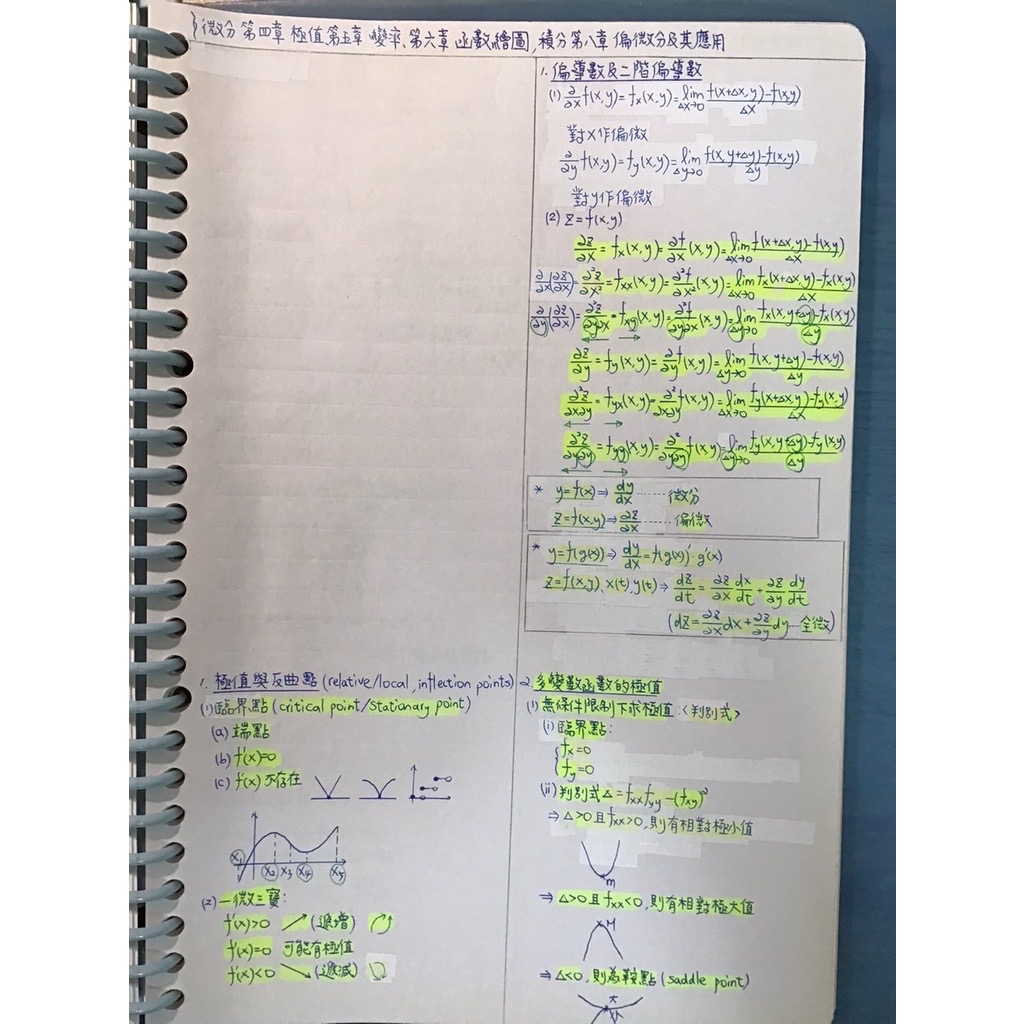 微分 第四章 極值、第五章 變率、第六章 函數繪圖, 積分 第八章 偏微分及其應用
1. 偏導數及二階偏導數
(1) ∂/∂x f(x,y) = fx(x,y) = lim Δx→0 (f(x+Δx,y)-f(x,y))/Δx
對x作偏微
∂/∂y f(x,y) = fy(x,y) = lim Δy→0 (f(x,y+Δy)-f(x,y))/Δy
對y作偏微
(2) z=f(x,y)
∂z/∂x = fx(x,y) = ∂f/∂x (x,y) = lim Δx→0 (f(x+Δx,y)-f(x,y))/Δx
∂/∂x(∂z/∂x) = ∂²z/∂x² = fxx(x,y) = ∂²f/∂x² (x,y) = lim Δx→0 (fx(x+Δx,y)-fx(x,y))/Δx
∂/∂y(∂z/∂x) = ∂²z/∂y∂x = fxy(x,y) = ∂²f/∂y∂x (x,y) = lim Δy→0 (fx(x,y+Δy)-fx(x,y))/Δy
∂z/∂y = fy(x,y) = ∂/∂y f(x,y) = lim Δy→0 (f(x,y+Δy)-f(x,y))/Δy
∂²z/∂x∂y = fyx(x,y) = ∂²/∂x∂y f(x,y) = lim Δx→0 (fy(x+Δx,y)-fy(x,y))/Δx
∂²z/∂y∂y = fyy(x,y) = ∂²/∂y∂y f(x,y) = lim Δy→0 (fy(x,y+Δy)-fy(x,y))/Δy
* y=f(x) ⇒ dy/dx ...... 微分
z=f(x,y) ⇒ ∂z/∂x ...... 偏微
* y=f(g(x)) ⇒ dy/dx = f(g(x))'·g'(x)
z=f(x,y), x(t), y(t) ⇒ dz/dt = ∂z/∂x dx/dt + ∂z/∂y dy/dt
(dz = ∂z/∂x dx + ∂z/∂y dy ... 全微)
1. 極值與反曲點 (relative/local, inflection points)
(1) 臨界點 (critical point/stationary point)
(a) 端點
(b) f'(x)=0
(c) f'(x) 不存在
x1 x2 x3 x4 x5
(2) 一微三寶:
f'(x)>0 (遞增)
f'(x)=0 可能有極值
f'(x)<0 (遞減)
2. 多變數函數的極值
(1) 無條件限制下求極值:<判別式>
(i) 臨界點:
fx=0
fy=0
(ii) 判別式 Δ = fxx fyy - (fxy)²
⇒ Δ>0 且 fxx>0, 則有相對極小值
m
⇒ Δ>0 且 fxx<0, 則有相對極大值
M
⇒ Δ<0, 則為鞍點 (saddle point)